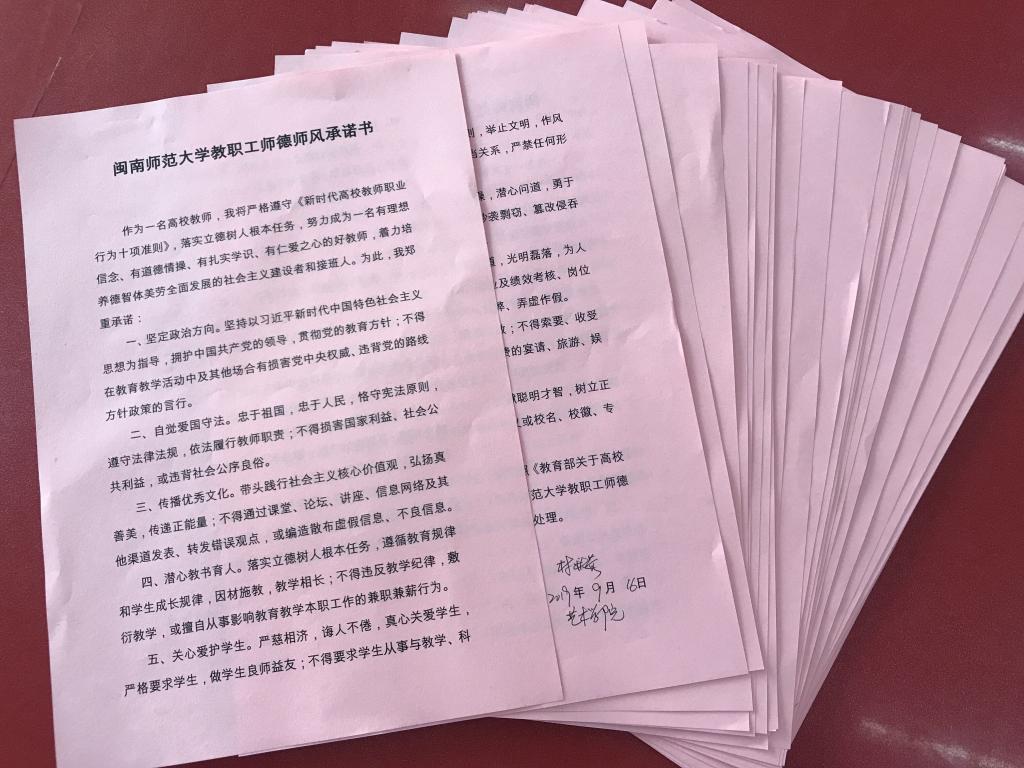 闽南师范大学教职工师德师风承诺书
作为一名高校教师，我将严格遵守《新时代高校教师职业
行为十项准则》，落实立德树人根本任务，努力成为一名有理想
信念、有道德情操、有扎实学识、有仁爱之心的好教师，着力培
养德智体美劳全面发展的社会主义建设者和接班人。为此，我郑
重承诺：
一、坚定政治方向。坚持以习近平新时代中国特色社会主义
思想为指导，拥护中国共产党的领导，贯彻党的教育方针；不得
在教育教学活动中及其他场合有损害党中央权威、违背党的路线
方针政策的言行。
二、自觉爱国守法。忠于祖国，忠于人民，恪守宪法原则，
遵守法律法规，依法履行教师职责；不得损害国家利益、社会公
共利益，或违背社会公序良俗。
三、传播优秀文化。带头践行社会主义核心价值观，弘扬真
善美，传递正能量；不得通过课堂、论坛、讲座、信息网络及其
他渠道发表、转发错误观点，或编造散布虚假信息、不良信息。
四、潜心教书育人。落实立德树人根本任务，遵循教育规律
和学生成长规律，因材施教，教学相长；不得违反教学纪律，敷
衍教学，或擅自从事影响教育教学本职工作的兼职兼薪行为。
五、关心爱护学生。严慈相济，诲人不倦，真心关爱学生，
严格要求学生，做学生良师益友；不得要求学生从事与教学、科
，举止文明，作风
当关系，严禁任何形
，潜心问道，勇于
抄袭剽窃、篡改侵吞
，光明磊落，为人
及绩效考核、岗位
、弄虚作假。
；不得索要、收受
费的宴请、旅游、娱
聪明才智，树立正
或校名、校徽、专
《教育部关于高校
范大学教职工师德
处理。
2019年9月16日
艺术学院